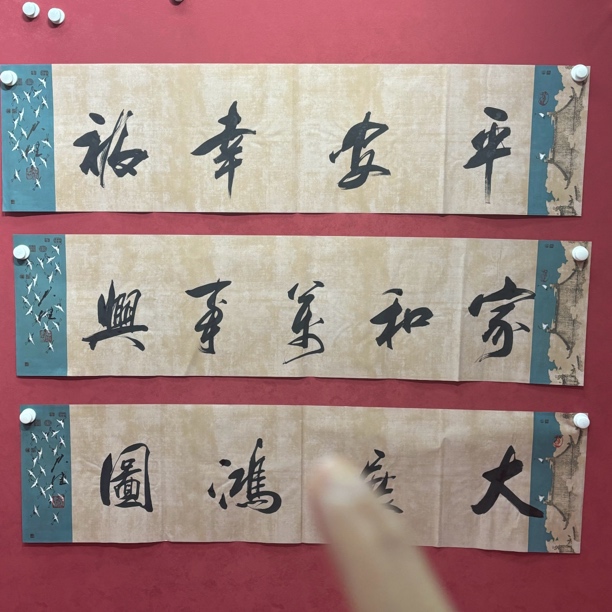 平安幸福
家和萬事興
大展鴻圖